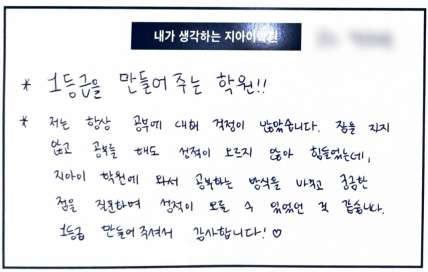 내가 생각하는 지아이학원
* 1등급을 만들어 주는 학원!!
* 저는 항상 공부에 대해 걱정이 많았습니다. 잠을 자지
않고 공부를 해도 성적이 오르지 않아 힘들었는데,
지아이 학원에 와서 공부하는 방식을 바꾸고 궁금한
점을 질문하며 성적이 오를 수 있었던 것 같습니다.
1등급 만들어주셔서 감사합니다! ♡